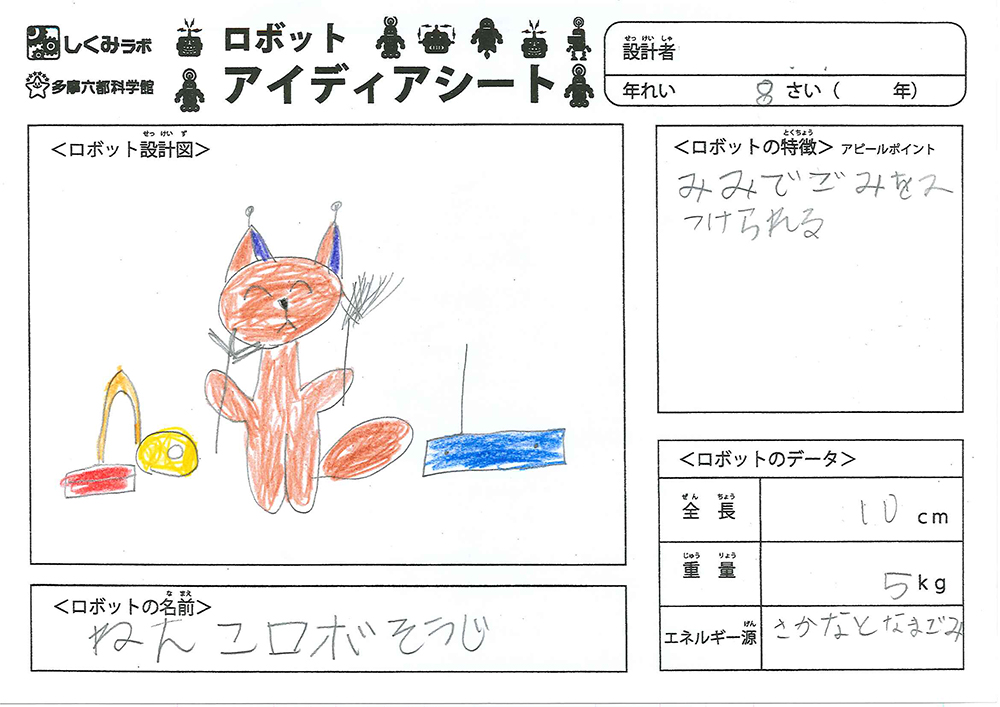 しくみラボ
多摩六都科学館
ロボット
アイディアシート
せっ けい しゃ
設計者
年れい 8 さい ( 年)
せっ けい ず
<ロボット設計図>
とくちょう
<ロボットの特徴> アピールポイント
みみでごみをみ
つけられる
<ロボットのデータ>
ぜん ちょう
全 長 10 cm
じゅう りょう
重 量 5 kg
げん
エネルギー源 さかなとなまごみ
な まえ
<ロボットの名前>
ねんコロボそうじ